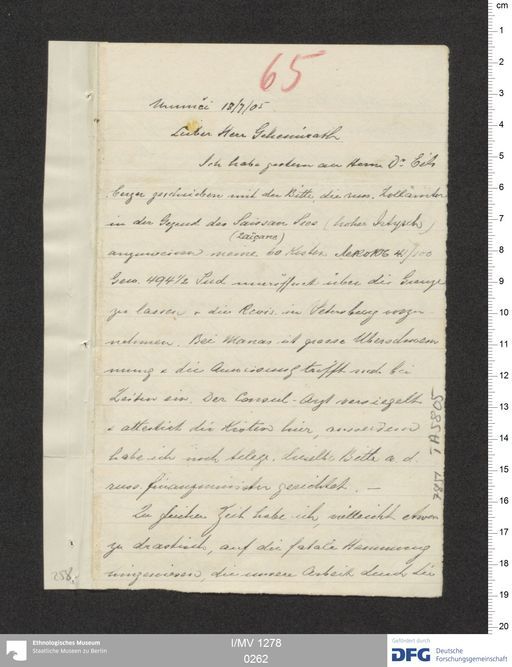 65
Urumči 18/7/05
Lieber Herr Geheimrath
Ich habe gestern an Herrn Dr. Eit-
ner geschrieben mit der Bitte, die russ. Zollämter
in der Gegend des Saissan Sees (hoher Irtysch)
(Zaïgane)
anzuweisen meine 60 Kisten
Gew. 494 1/2 Pud uneröffnet über die Grenze
zu lassen & die Revis. in Petersburg vorzu-
nehmen. Bei Manas ist grosse Überschwem
mung & die Anweisung trifft noch bei
Zeiten ein. Der Consul-Arzt versiegelt
& attestirt die Kisten hier, ausserdem
habe ich noch telegr. dieselbe Bitte a. d.
russ. Finanzminister gerichtet. —
Zu gleicher Zeit habe ich, vielleicht etwas
zu drastisch, auf die fatale Hemmung
hingewiesen, die unsere Arbeit durch die
258.
Ethnologisches Museum
Staatliche Museen zu Berlin
I/MV 1278
0262
Gefördert durch
DFG Deutsche
Forschungsgemeinschaft
cm
1
2
3
4
5
6
7
8
9
10
11
12
13
14
15
16
17
18
19
20